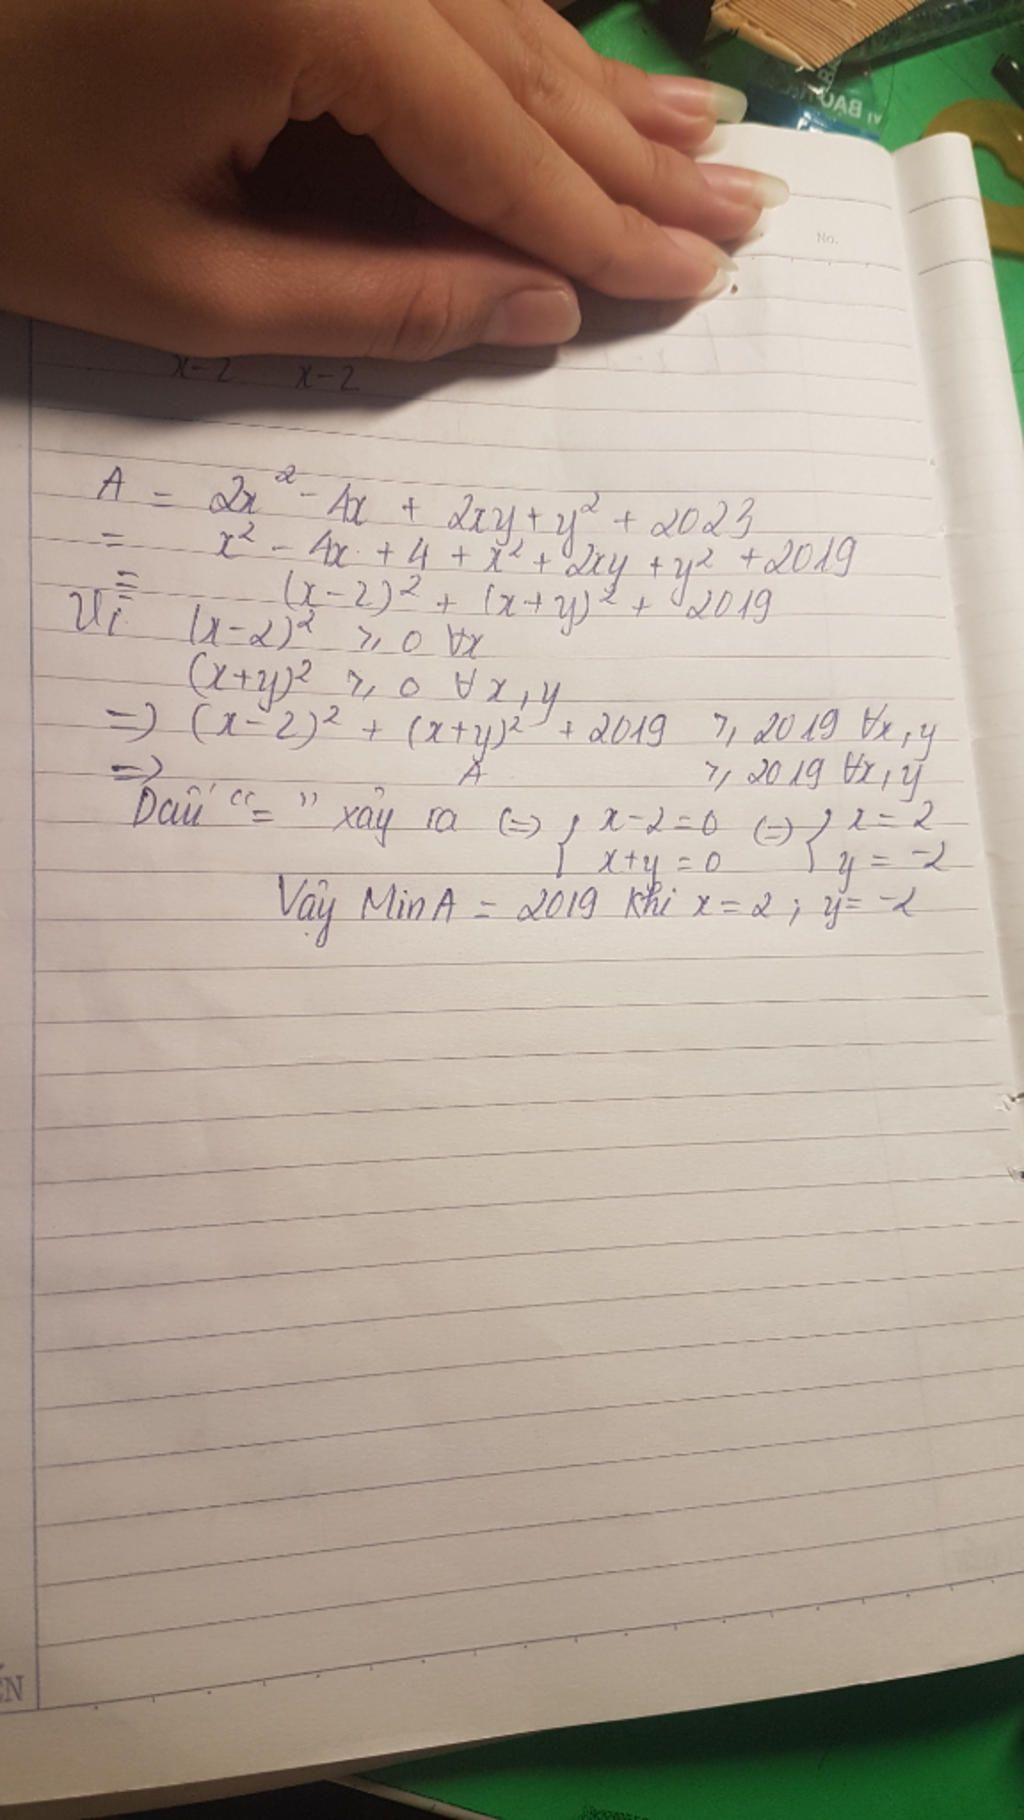 BAO
No.
x-2 x-2
A = 2x² - 4x + 2xy + y² + 2023
= x² - 4x + 4 + x² + 2xy + y² + 2019
= (x-2)² + (x+y)² + 2019
Vì (x-2)² ≥ 0 ∀x
(x+y)² ≥ 0 ∀x,y
=> (x-2)² + (x+y)² + 2019 ≥ 2019 ∀x,y
=> A ≥ 2019 ∀x,y
Dấu "=" xảy ra (=) { x-2=0 (=) { x=2
x+y=0 y=-2
Vậy Min A = 2019 khi x=2; y=-2